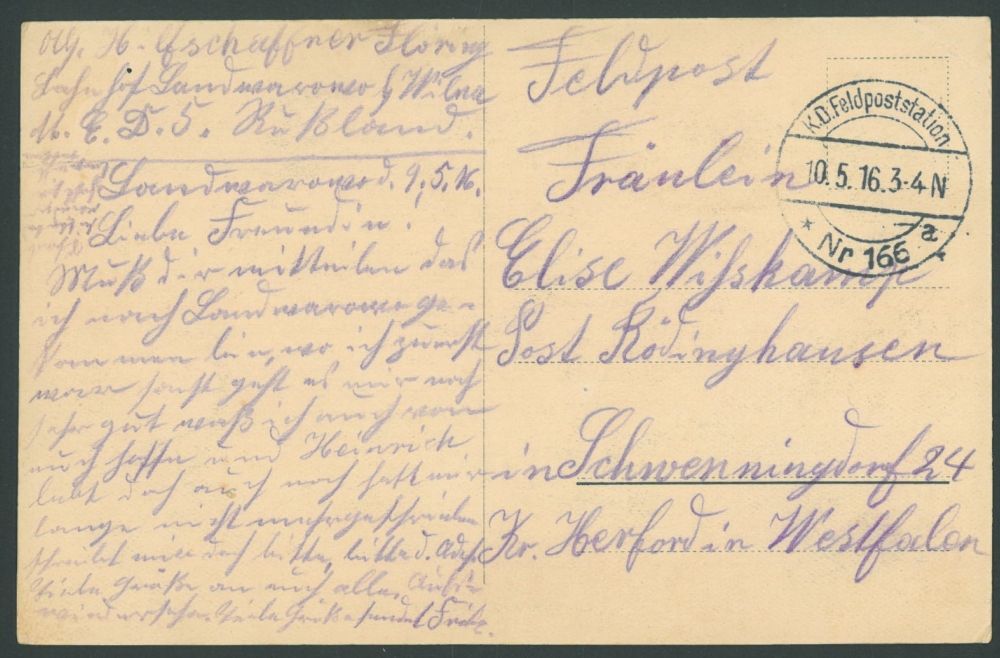 H. Eschaffner Floring
Bahnhof Landwarowo b/Wilna
M. E. D. 5. Rußland.
Landwarowo d. 9.5.16.
Liebe Freundin!
Muß dir mitteilen das
ich nach Landwarowo ge-
kommen bin, wo ich zuerst
war sonst geht es mir noch
sehr gut waß ich auch von
euch hoffe und Heinrich
lebt doch auch noch hast mir
lange nicht mehr geschrieben
schreibet mir doch bitte, bitte d. Adr.
Viele Grüße an euch alle. Auf
wiedersehn. Viele Grüße sendet Fritz.
Feldpost
Fräulein
Elise Wißkamp
Post Rödinghausen
in Schwenningdorf 24
Kr. Herford in Westfalen
K.D. Feldpoststation
10.5.16.3-4N
a
* Nr 166 *